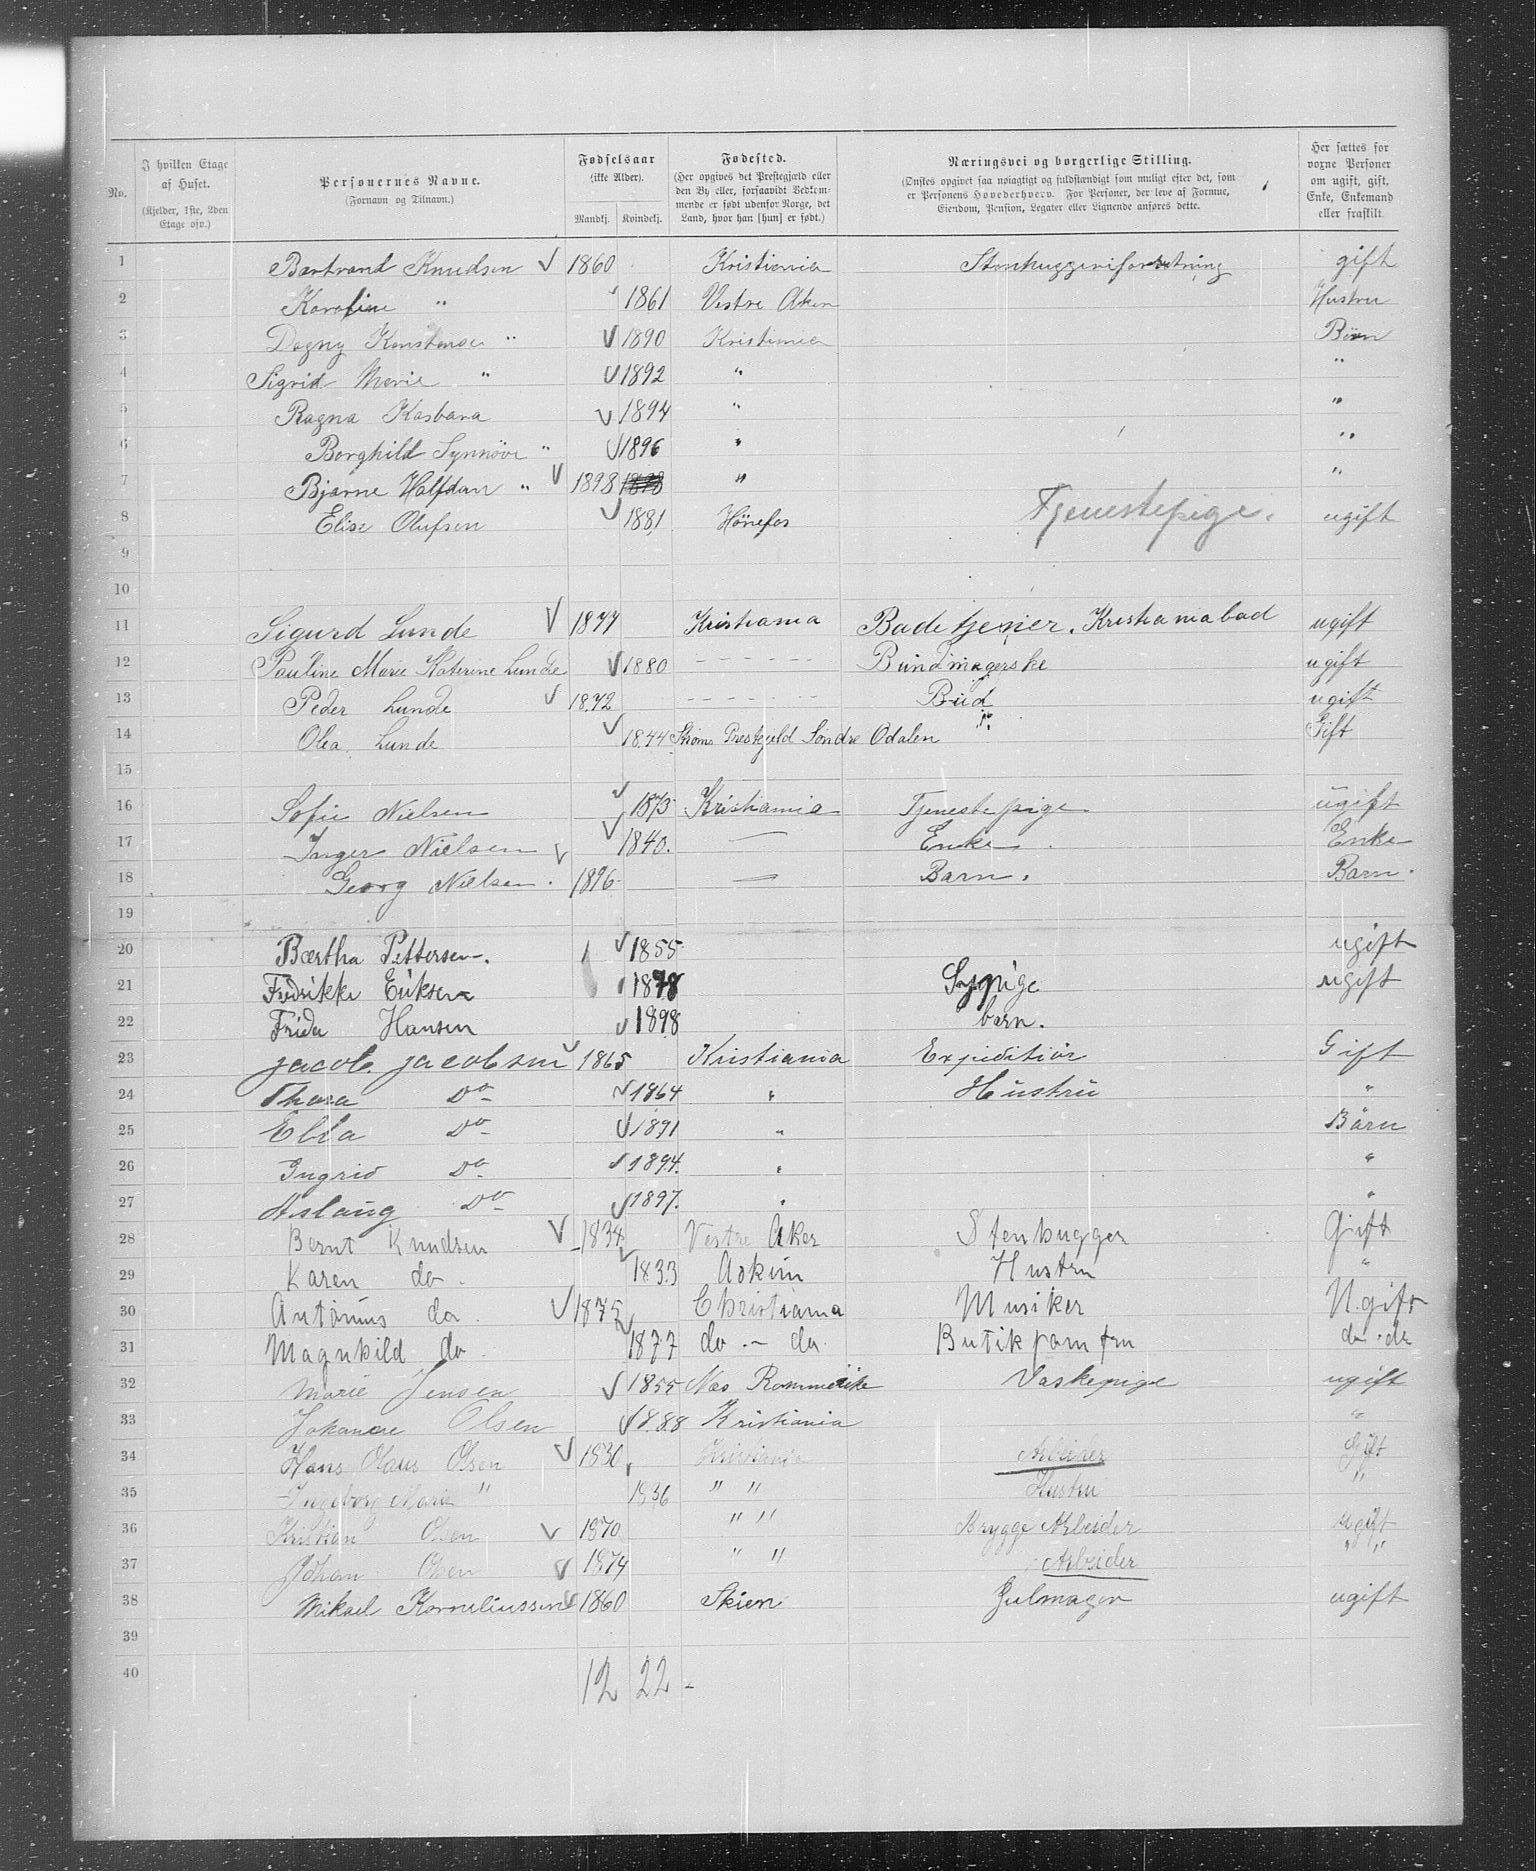 No.
I hvilken Etage af Huset. (Kjelder, 1ste, 2den Etage osv.)
Personernes Navne. (Fornavn og Tilnavn.)
Fødselsaar (ikke Alder). Mandkj. Kvindekj.
Fødested. (Her opgives det Prestegjæld eller den By eller, forsaavidt Vedkommende er født udenfor Norge, det Land, hvor han [hun] er født.)
Næringsvei og borgerlige Stilling. (Ønskes opgivet saa nøiagtigt og fuldstændigt som muligt efter det, som er Personens Hovederhverv. For Personer, der leve af Formue, Eiendom, Pension, Legater eller Lignende anføres dette.)
Her sættes for voxne Personer om ugift, gift, Enke, Enkemand eller fraskilt.
1 Bertrand Knudsen 1860 Kristiania Stenhuggeriforretning gift
2 Karoline " 1861 Vestre Aker Hustru
3 Dagny Konstanse " 1890 Kristiania Børn
4 Sigrid Marie " 1892 " "
5 Ragna Kasbara 1894 " "
6 Borghild Synnöve " 1896 " "
7 Bjarne Halfdan " 1898 " "
8 Elise Olufsen 1881 Hönefos Tjenestepige. ugift
9
10
11 Sigurd Lunde 1877 Kristiania Badetjener. Kristianiabad ugift
12 Pauline Marie Katerine Lunde 1880 - - - - - Bundmagerske ugift
13 Peder Lunde 1872 - - - - - - Bud ugift
14 Olea Lunde 1844 Ströms Prestgjeld Söndre Odalen Gift
15
16 Sofie Nielsen 1873 Kristiania Tjenestepige ugift
17 Inger Nielsen 1840. — Enke Enke
18 Georg Nielsen. 1896. — Barn. Barn.
19
20 Bærtha Pettersen. 1855 ugift
21 Fredrikke Eriksen 1878 Sypige ugift
22 Frida Hansen 1898 barn.
23 Jacob. Jacobsen 1865 Kristiania Expeditiör Gift
24 Thora Do 1864 " Hustru "
25 Ebba Do 1891 " Børn
26 Ingrid Do 1894. " "
27 Aslaug Do 1897. " "
28 Bernt Knudsen 1834 Vestre Aker Stenhugger Gift
29 Karen do. 1833 Askim Hustru "
30 Antonius do. 1875 Christiania Musiker Ugift
31 Magnhild do. 1877 do. - do. Butikjomfru do. do
32 Marie Jensen 1855 Næs Rommerike Vaskepige ugift
33 Johanne Olsen 1888 Kristiania "
34 Hans Olaus Olsen 1830 Kristiania Arbeider Gift
35 Ingeborg Marie " 1836 " " Hustru "
36 Kristian Olsen 1870 " " Brygge Arbeider ugift
37 Johan Olsen 1874 " " Arbeider " "
38 Mikael Korneliussen 1860 Skien Gulmager ugift
39
40 12 22 -